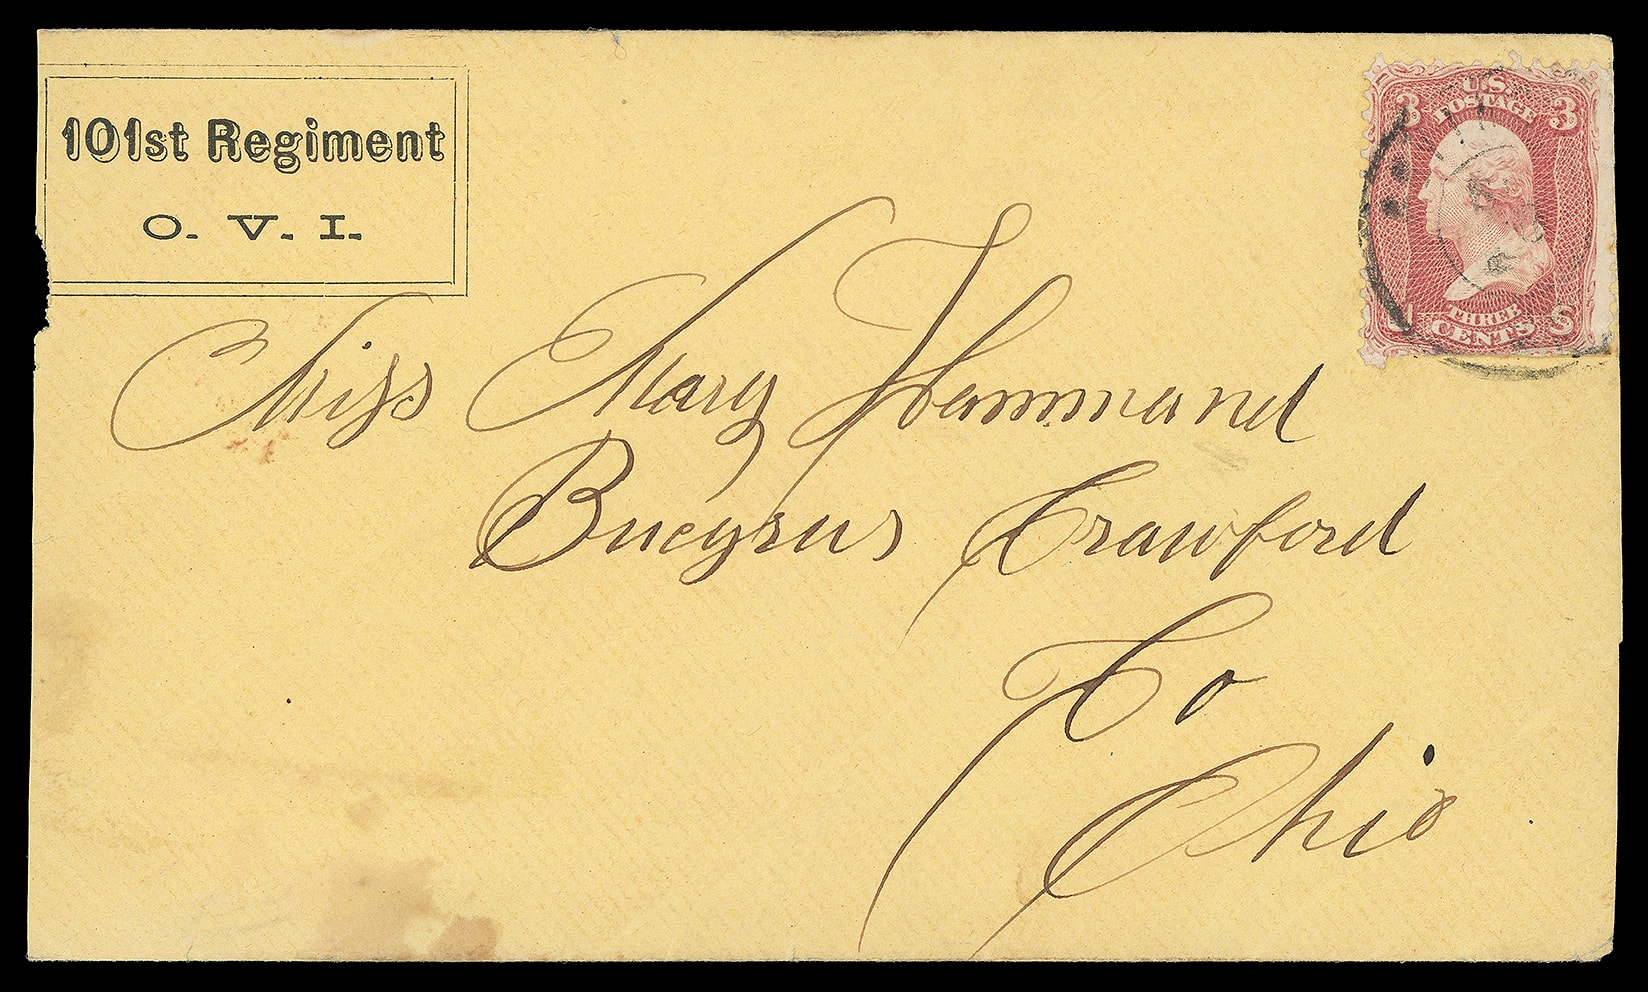 101st Regiment
O. V. I.
U.S.
POSTAGE
3 3
THREE
CENTS
U S
Miss Mary Hammand
Bucyrus Crawford
Co
Ohio